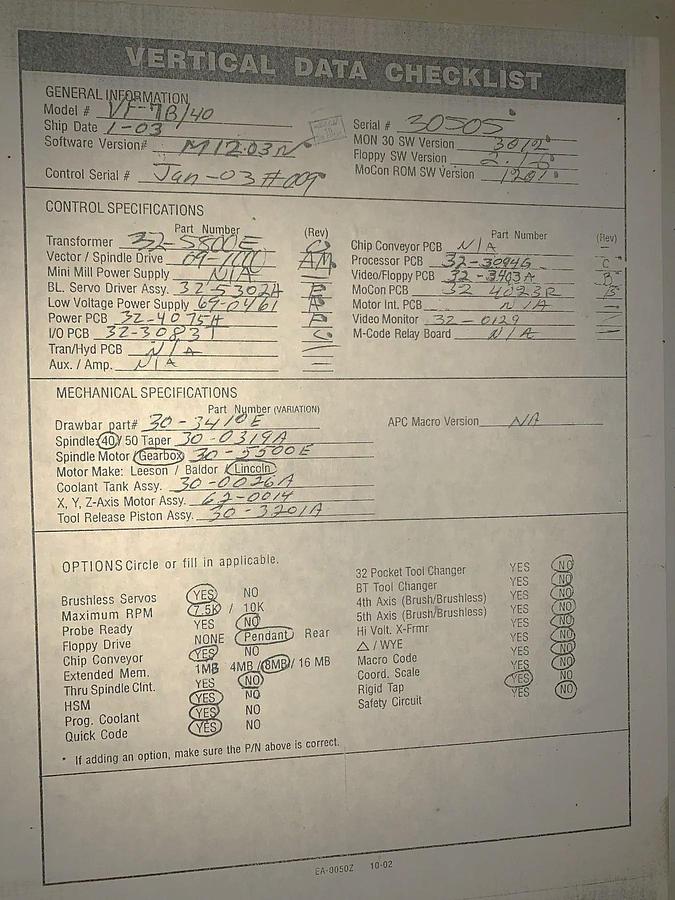 VERTICAL DATA CHECKLIST
GENERAL INFORMATION
Model # VF-7B/40
Ship Date 1-03
Software Version# M12.03N
Control Serial # Jan-03#009
Serial # 30505
MON 30 SW Version
Floppy SW Version
MoCon ROM SW Version
CONTROL SPECIFICATIONS
Part Number (Rev)
Transformer 32-5800E C
Vector / Spindle Drive 09-1000 AM
Mini Mill Power Supply N/A —
BL. Servo Driver Assy. 32-5302A
Low Voltage Power Supply 69-0461 A
Power PCB 32-4075H F
I/O PCB 32-3083T C
Tran/Hyd PCB N/A —
Aux. / Amp. N/A —
Part Number (Rev)
Chip Conveyor PCB N/A —
Processor PCB 32-3094G C
Video/Floppy PCB 32-3403A B
MoCon PCB 32 4023R B
Motor Int. PCB N/A —
Video Monitor 32-0129 —
M-Code Relay Board N/A —
MECHANICAL SPECIFICATIONS
Part Number (VARIATION)
Drawbar part# 30-3410E
Spindle: 40 / 50 Taper 30-0319A
Spindle Motor Gearbox 30-5500E
Motor Make: Leeson / Baldor / Lincoln
Coolant Tank Assy. 30-0026A
X, Y, Z-Axis Motor Assy. 62-0014
Tool Release Piston Assy. 30-3201A
APC Macro Version NA
OPTIONS Circle or fill in applicable.
Brushless Servos YES NO
Maximum RPM 7.5K / 10K
Probe Ready YES NO
Floppy Drive NONE Pendant Rear
Chip Conveyor YES NO
Extended Mem. 1MB 4MB / 8MB / 16 MB
Thru Spindle Clnt. YES NO
HSM YES NO
Prog. Coolant YES NO
Quick Code YES NO
32 Pocket Tool Changer YES NO
BT Tool Changer YES NO
4th Axis (Brush/Brushless) YES NO
5th Axis (Brush/Brushless) YES NO
Hi Volt. X-Frmr YES NO
△ / WYE YES NO
Macro Code YES NO
Coord. Scale YES NO
Rigid Tap YES NO
Safety Circuit YES NO
* If adding an option, make sure the P/N above is correct.
EA-0050Z 10-02